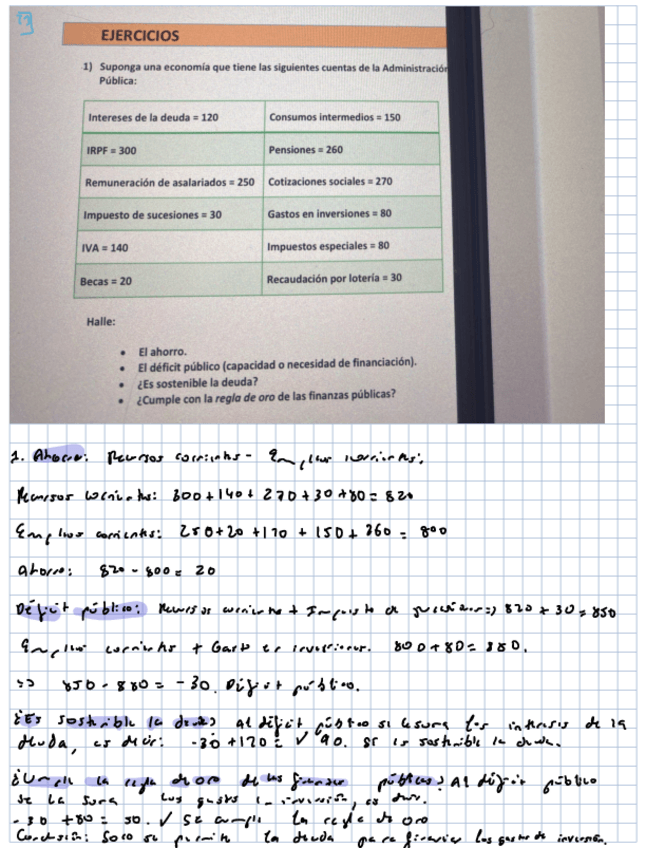 T3
EJERCICIOS
1) Suponga una economía que tiene las siguientes cuentas de la Administración
Pública:
Intereses de la deuda = 120
Consumos intermedios = 150
IRPF = 300
Pensiones = 260
Remuneración de asalariados = 250
Cotizaciones sociales = 270
Impuesto de sucesiones = 30
Gastos en inversiones = 80
IVA = 140
Impuestos especiales = 80
Becas = 20
Recaudación por lotería = 30
Halle:
• El ahorro.
• El déficit público (capacidad o necesidad de financiación).
• ¿Es sostenible la deuda?
• ¿Cumple con la regla de oro de las finanzas públicas?
1. Ahorro: Recursos corrientes - Empleos corrientes:
Recursos corrientes: 300+140+270+30+80=820
Empleos corrientes: 250+20+120+150+260=800
Ahorro: 820-800=20
Déficit público: Recursos corrientes + Impuesto de sucesiones => 820+30=850
Empleos corrientes + Gasto en inversiones. 800+80=880.
=> 850-880=-30. Déficit público.
¿Es sostenible la deuda? Al déficit público se le suma los intereses de la
deuda, es decir: -30+120= ✓ 90. Sí es sostenible la deuda.
¿Cumple la regla de oro de las finanzas públicas? Al déficit público
se la suma los gastos en inversión, es decir.
-30+80=50. ✓ Se cumple la regla de oro
Conclusión: Solo se permite la deuda para financiar los gastos de inversión.